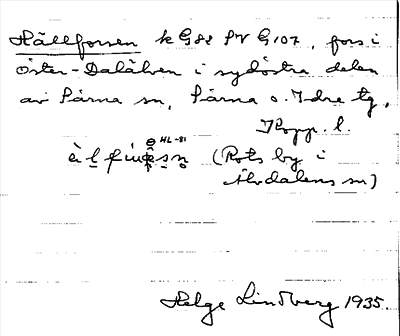 Hällforsen k G82 PV G107, fors i
Öster-Dalälven i sydöstra delen
av Särna sn, Särna o. Idre tg,
Kopp. l.
HL-81
(Rots by i
Älvdalens sn)
Helge Lindberg 1935.